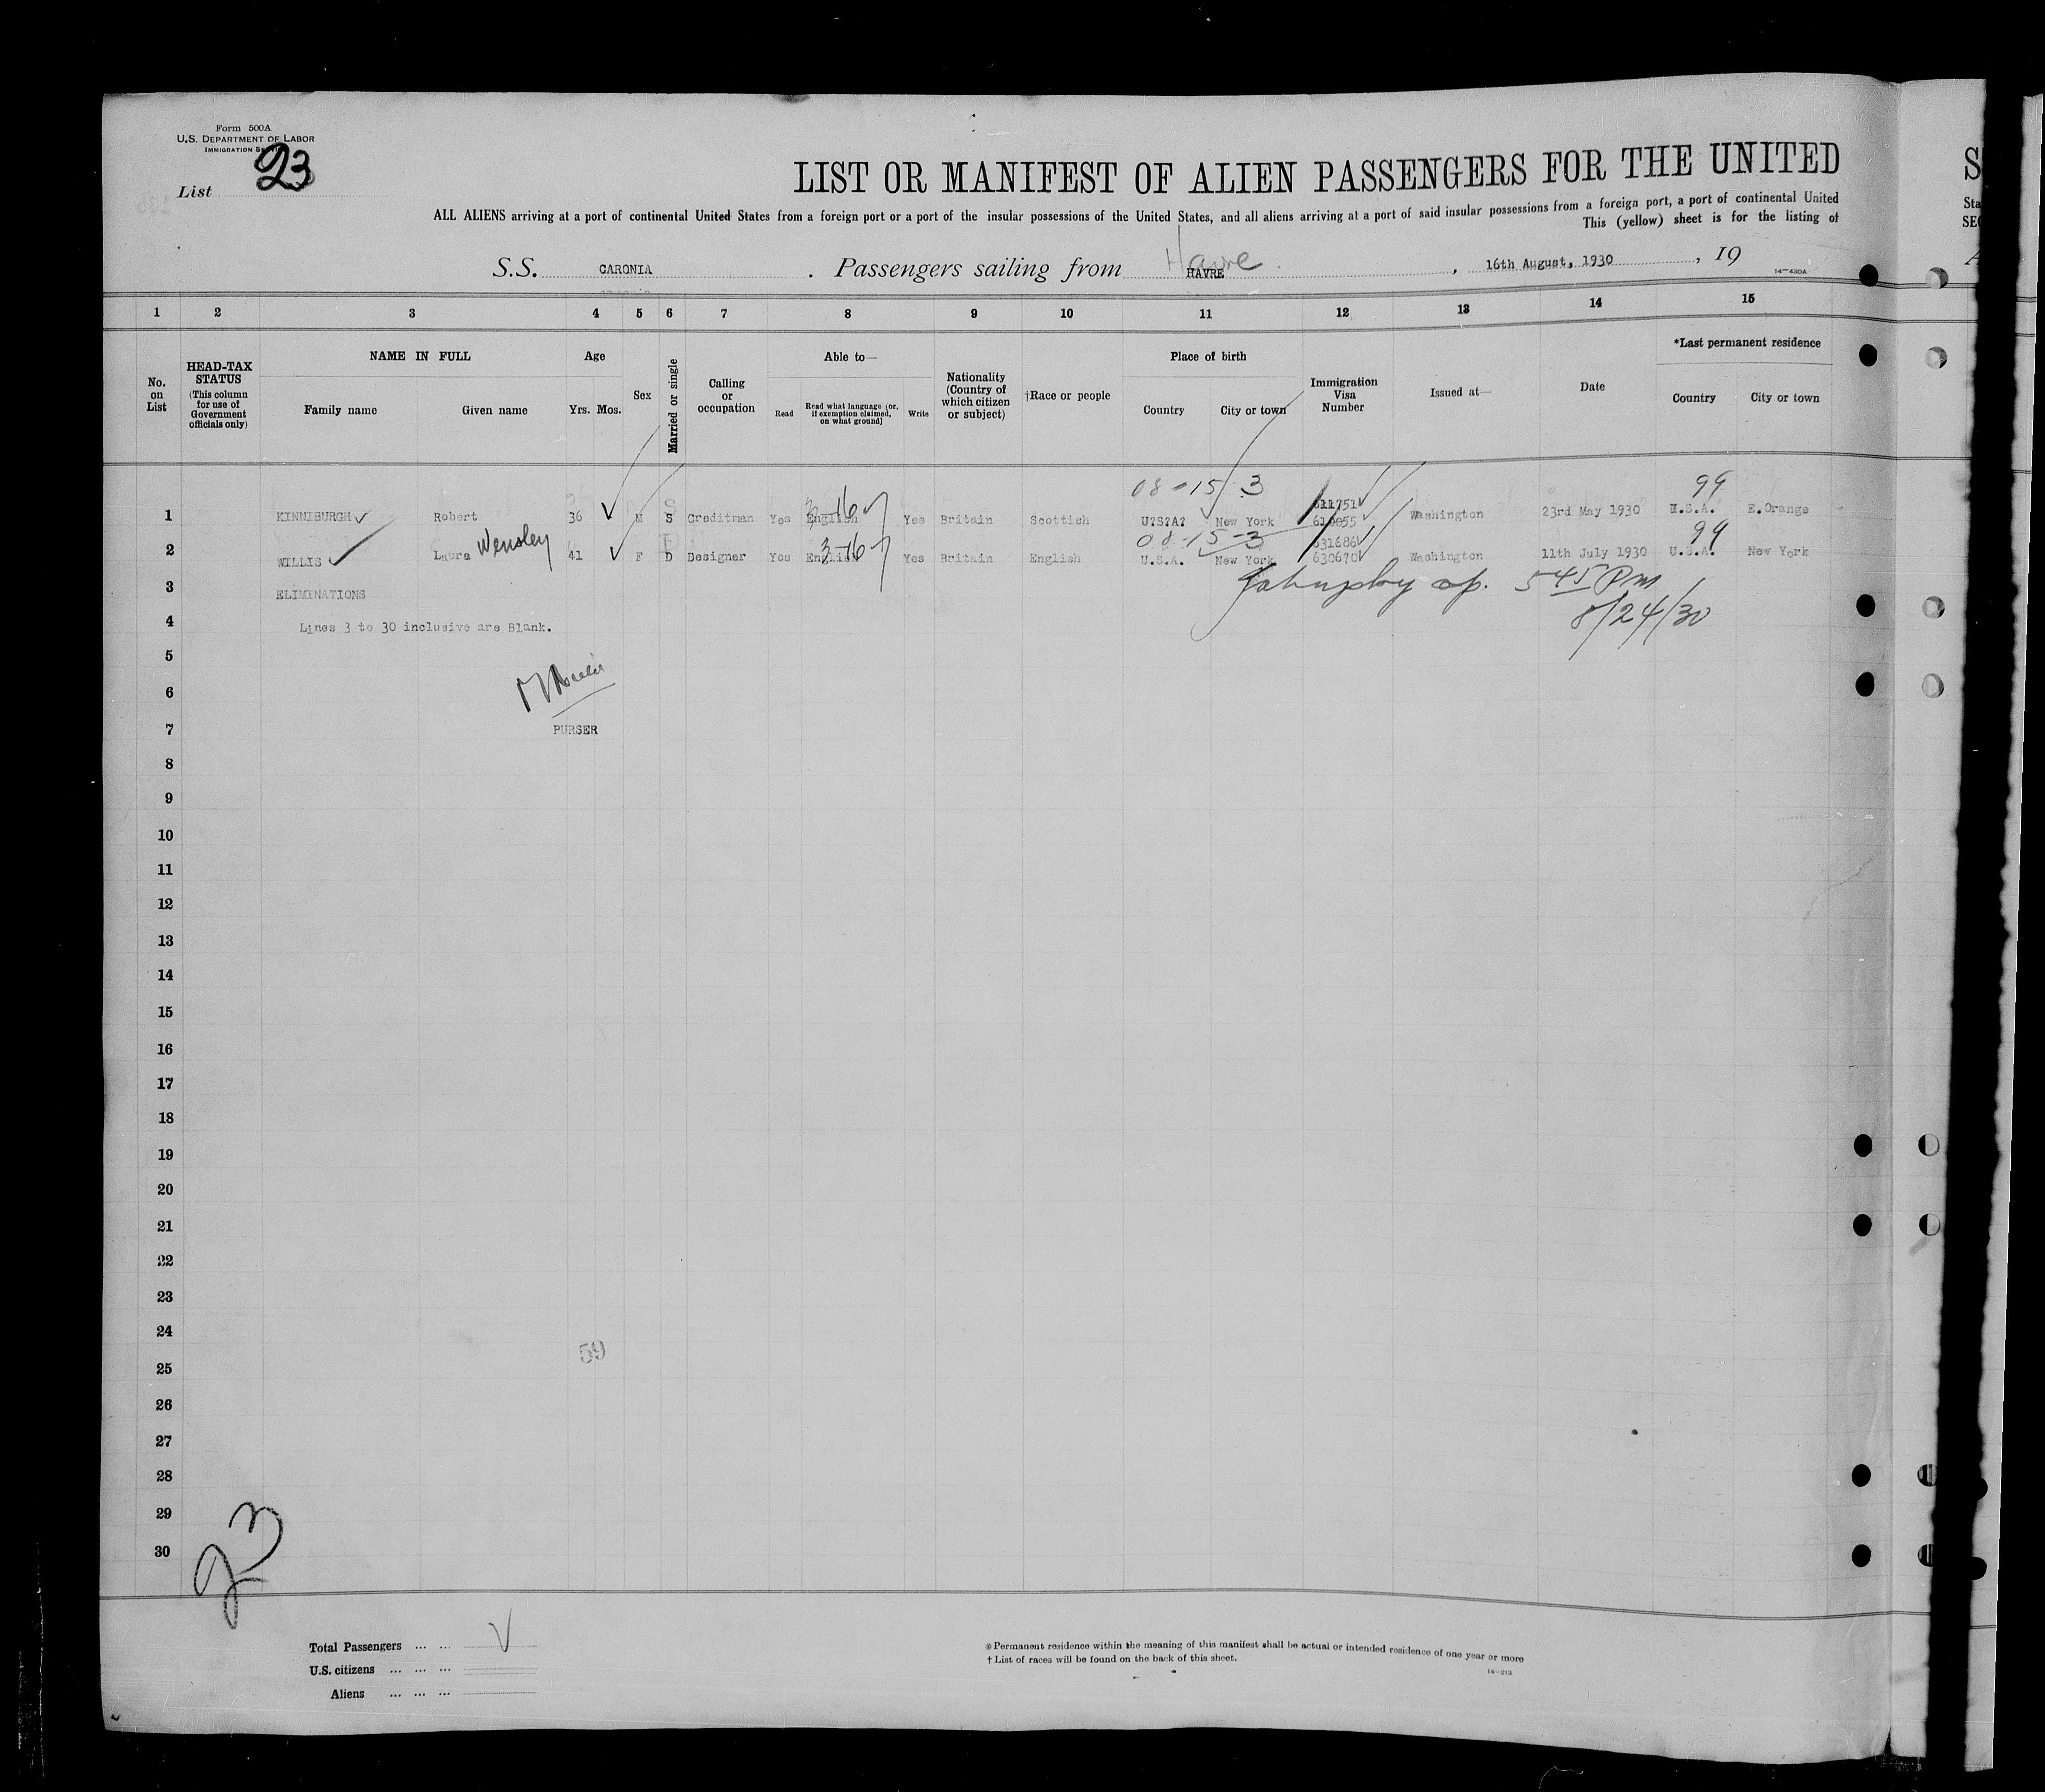 Form 500A
U.S. DEPARTMENT OF LABOR
IMMIGRATION
List 23
LIST OR MANIFEST OF ALIEN PASSENGERS FOR THE UNITED
ALL ALIENS arriving at a port of continental United States from a foreign port or a port of the insular possessions of the United States, and all aliens arriving at a port of said insular possessions from a foreign port, a port of continental United
This (yellow) sheet is for the listing of
S.S. CARONIA . Passengers sailing from HAVRE Havre , 16th August, 1930 , 19
14-430A
1 2 3 4 5 6 7 8 9 10 11 12 13 14 15
No. on List
HEAD-TAX STATUS (This column for use of Government officials only)
NAME IN FULL
Family name Given name
Age
Yrs. Mos.
Sex
Married or single
Calling or occupation
Able to—
Read
Read what language [or, if exemption claimed, on what ground]
Write
Nationality (Country of which citizen or subject)
†Race or people
Place of birth
Country City or town
Immigration Visa Number
Issued at—
Date
*Last permanent residence
Country City or town
08-15-3 99
1 KINNIBURGH Robert 36 M S Creditman Yes English 3-16 Yes Britain Scottish U?S?A? New York Washington 23rd May 1930 U.S.A. E.Orange
08-15-3 631686 99
2 WILLIS Laura Wensley 41 F D Designer Yes English 3-16 Yes Britain English U.S.A. New York 630670 Washington 11th July 1930 U.S.A. New York
3 ELIMINATIONS 545 Pm
4 Lines 3 to 30 inclusive are Blank. 8/24/30
5
6
7 PURSER
8
9
10
11
12
13
14
15
16
17
18
19
20
21
22
23
24
59
25
26
27
28
29
30
23
Total Passengers ... ...
U.S. citizens ... ... ...
Aliens ... ... ...
* Permanent residence within the meaning of this manifest shall be actual or intended residence of one year or more
† List of races will be found on the back of this sheet.
14-213